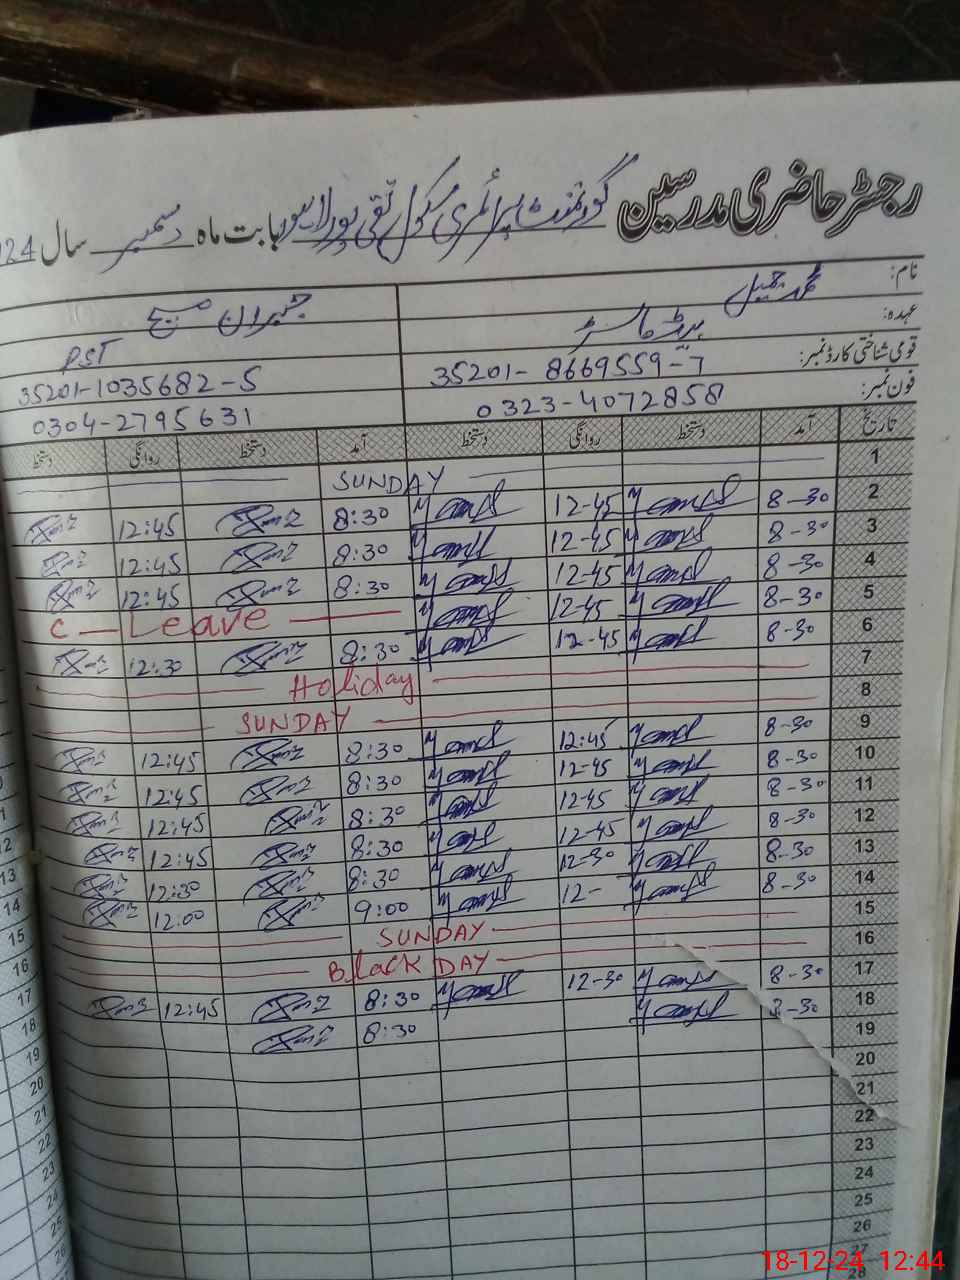 رجسٹر حاضری مدرسین گورنمنٹ پرائمری سکول تقی پور لاہور بابت ماہ دسمبر سال 024
نام: محمد جمیل جبران مسیح
عہدہ: ہیڈ ماسٹر PST
قومی شناختی کارڈ نمبر: 35201-8669559-7 35201-1035682-5
فون نمبر: 0323-4072858 0304-2795631
تاریخ آمد دستخط روانگی دستخط آمد دستخط روانگی دستخط
1 SUNDAY
2 8-30 12-45 8:30 12:45
3 8-30 12-45 8:30 12:45
4 8-30 12-45 8:30 12:45
5 8-30 12-45 C Leave
6 8-30 12-45 8:30 12:30
7 Holiday
8 SUNDAY
9 8-30 12:45 8:30 12:45
10 8-30 12-45 8:30 12:45
11 8-30 12-45 8:30 12:45
12 8-30 12-45 8:30 12:45
13 8-30 12-30 8:30 12:30
14 8-30 12- 9:00 12:00
15 SUNDAY
16 Black DAY
17 8-30 12-30 8:30 12:45
18 8-30 8:30
19
20
21
22
23
24
25
26
27
28
12
13
14
15
16
17
18
19
20
21
22
23
24
25
26
18-12-24 12:44